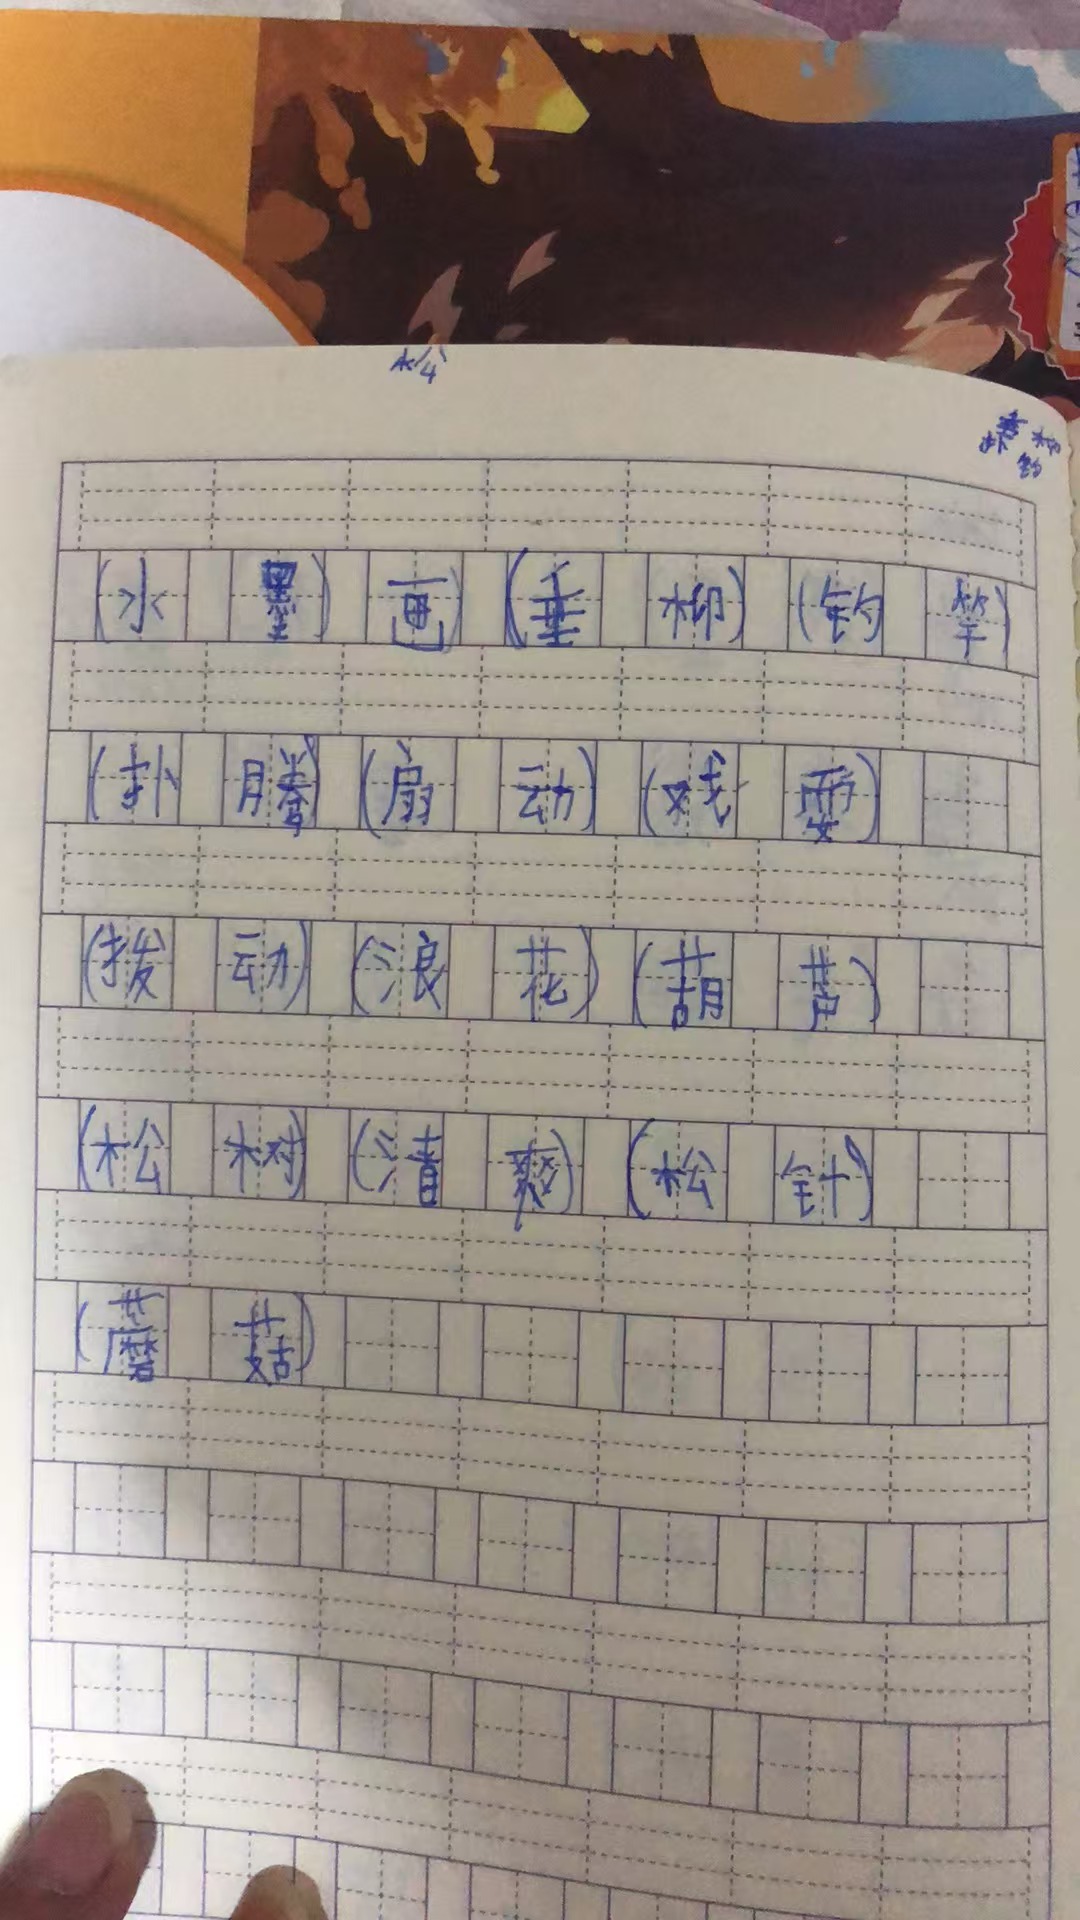 (水墨)画(垂柳)(钓竿)
(扑腾)(扇动)(戏耍)
(拨动)(浪花)(葫芦)
(松树)(清爽)(松针)
(蘑菇)